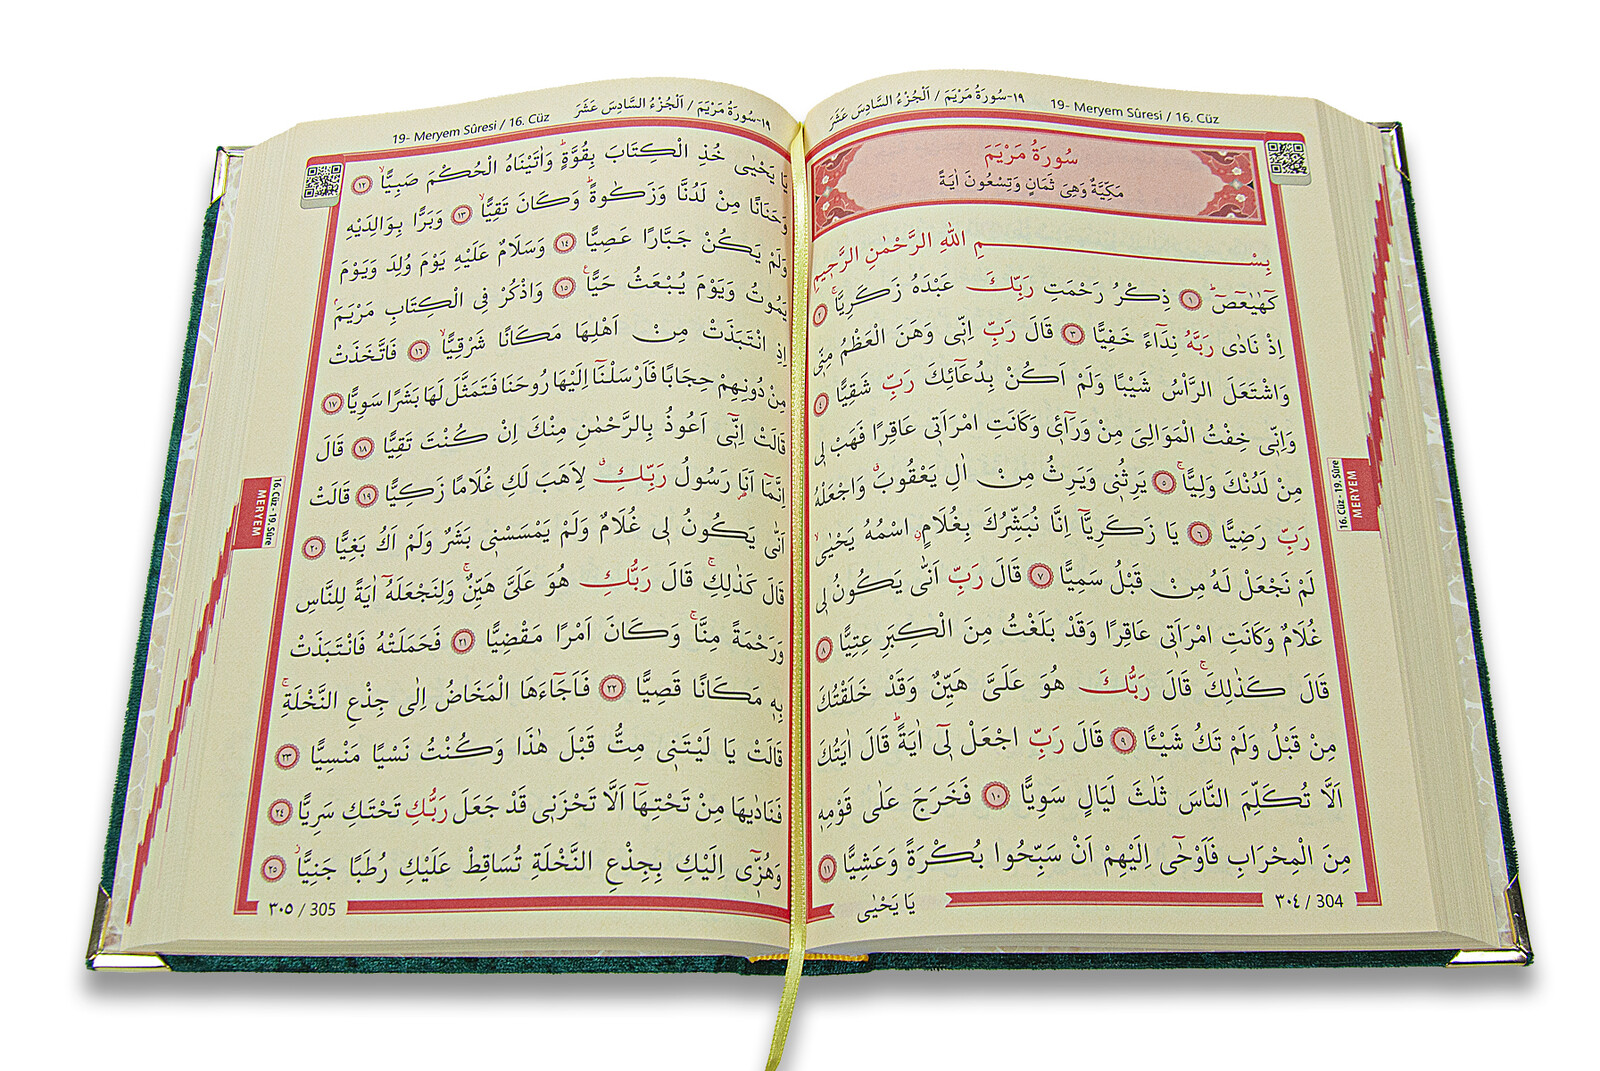 ١٩-سُورَةُ مَرْيَمَ / اَلْجُزْءُ السَّادِسَ عَشَرَ 19- Meryem Sûresi / 16. Cüz
سُورَةُ مَرْيَمَ
مَكِّيَّةٌ وَهِىَ ثَمَانٍ وَتِسْعُونَ اٰيَةً
بِسْمِ اللّٰهِ الرَّحْمٰنِ الرَّحٖيمِ
كٓهٰيٰعٓصٓ ۚ ﴿١﴾ ذِكْرُ رَحْمَتِ رَبِّكَ عَبْدَهُ زَكَرِيَّا ۚ ﴿٢﴾
اِذْ نَادٰى رَبَّهُ نِدَٓاءً خَفِيًّا ﴿٣﴾ قَالَ رَبِّ اِنّٖى وَهَنَ الْعَظْمُ مِنّٖى
وَاشْتَعَلَ الرَّأْسُ شَيْبًا وَلَمْ اَكُنْ بِدُعَٓائِكَ رَبِّ شَقِيًّا ﴿٤﴾
وَاِنّٖى خِفْتُ الْمَوَالِىَ مِنْ وَرَٓاءٖى وَكَانَتِ امْرَاَتٖى عَاقِرًا فَهَبْ لٖى
مِنْ لَدُنْكَ وَلِيًّا ۙ ﴿٥﴾ يَرِثُنٖى وَيَرِثُ مِنْ اٰلِ يَعْقُوبَ وَاجْعَلْهُ
رَبِّ رَضِيًّا ﴿٦﴾ يَا زَكَرِيَّٓا اِنَّا نُبَشِّرُكَ بِغُلَامٍ اسْمُهُ يَحْيٰى ۙ
لَمْ نَجْعَلْ لَهُ مِنْ قَبْلُ سَمِيًّا ﴿٧﴾ قَالَ رَبِّ اَنّٰى يَكُونُ لٖى
غُلَامٌ وَكَانَتِ امْرَاَتٖى عَاقِرًا وَقَدْ بَلَغْتُ مِنَ الْكِبَرِ عِتِيًّا ﴿٨﴾
قَالَ كَذٰلِكَ ۚ قَالَ رَبُّكَ هُوَ عَلَىَّ هَيِّنٌ وَقَدْ خَلَقْتُكَ
مِنْ قَبْلُ وَلَمْ تَكُ شَيْـًٔا ﴿٩﴾ قَالَ رَبِّ اجْعَلْ لٖٓى اٰيَةً ۜ قَالَ اٰيَتُكَ
اَلَّا تُكَلِّمَ النَّاسَ ثَلٰثَ لَيَالٍ سَوِيًّا ﴿١٠﴾ فَخَرَجَ عَلٰى قَوْمِهٖ
مِنَ الْمِحْرَابِ فَاَوْحٰٓى اِلَيْهِمْ اَنْ سَبِّحُوا بُكْرَةً وَعَشِيًّا ﴿١١﴾
يَا يَحْيٰى
٣٠٤ / 304
16. Cüz - 19. Sûre
MERYEM
19- Meryem Sûresi / 16. Cüz ١٩-سُورَةُ مَرْيَمَ / اَلْجُزْءُ السَّادِسَ عَشَرَ
يَا يَحْيٰى خُذِ الْكِتَابَ بِقُوَّةٍ ۜ وَاٰتَيْنَاهُ الْحُكْمَ صَبِيًّا ۙ ﴿١٢﴾
وَحَنَانًا مِنْ لَدُنَّا وَزَكٰوةً ۜ وَكَانَ تَقِيًّا ۙ ﴿١٣﴾ وَبَرًّا بِوَالِدَيْهِ
وَلَمْ يَكُنْ جَبَّارًا عَصِيًّا ﴿١٤﴾ وَسَلَامٌ عَلَيْهِ يَوْمَ وُلِدَ وَيَوْمَ
يَمُوتُ وَيَوْمَ يُبْعَثُ حَيًّا ۟ ﴿١٥﴾ وَاذْكُرْ فِى الْكِتَابِ مَرْيَمَ ۢ
اِذِ انْتَبَذَتْ مِنْ اَهْلِهَا مَكَانًا شَرْقِيًّا ۙ ﴿١٦﴾ فَاتَّخَذَتْ
مِنْ دُونِهِمْ حِجَابًا فَاَرْسَلْنَٓا اِلَيْهَا رُوحَنَا فَتَمَثَّلَ لَهَا بَشَرًا سَوِيًّا ﴿١٧﴾
قَالَتْ اِنّٖٓى اَعُوذُ بِالرَّحْمٰنِ مِنْكَ اِنْ كُنْتَ تَقِيًّا ﴿١٨﴾ قَالَ
اِنَّمَٓا اَنَا رَسُولُ رَبِّكِ ۗ لِاَهَبَ لَكِ غُلَامًا زَكِيًّا ﴿١٩﴾ قَالَتْ
اَنّٰى يَكُونُ لٖى غُلَامٌ وَلَمْ يَمْسَسْنٖى بَشَرٌ وَلَمْ اَكُ بَغِيًّا ﴿٢٠﴾
قَالَ كَذٰلِكِ ۚ قَالَ رَبُّكِ هُوَ عَلَىَّ هَيِّنٌ ۚ وَلِنَجْعَلَهُٓ اٰيَةً لِلنَّاسِ
وَرَحْمَةً مِنَّا ۚ وَكَانَ اَمْرًا مَقْضِيًّا ﴿٢١﴾ فَحَمَلَتْهُ فَانْتَبَذَتْ
بِهٖ مَكَانًا قَصِيًّا ﴿٢٢﴾ فَاَجَٓاءَهَا الْمَخَاضُ اِلٰى جِذْعِ النَّخْلَةِ ۚ
قَالَتْ يَا لَيْتَنٖى مِتُّ قَبْلَ هٰذَا وَكُنْتُ نَسْيًا مَنْسِيًّا ﴿٢٣﴾
فَنَادٰيهَا مِنْ تَحْتِهَٓا اَلَّا تَحْزَنٖى قَدْ جَعَلَ رَبُّكِ تَحْتَكِ سَرِيًّا ﴿٢٤﴾
وَهُزّٖٓى اِلَيْكِ بِجِذْعِ النَّخْلَةِ تُسَاقِطْ عَلَيْكِ رُطَبًا جَنِيًّا ۘ ﴿٢٥﴾
٣٠٥ / 305
16. Cüz - 19. Sûre
MERYEM